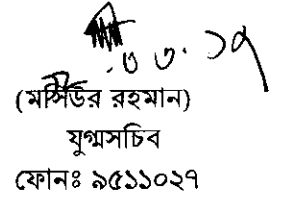 ৩.৩.১৭
(মসিউর রহমান)
যুগ্মসচিব
ফোনঃ ৯৫১১০২৭